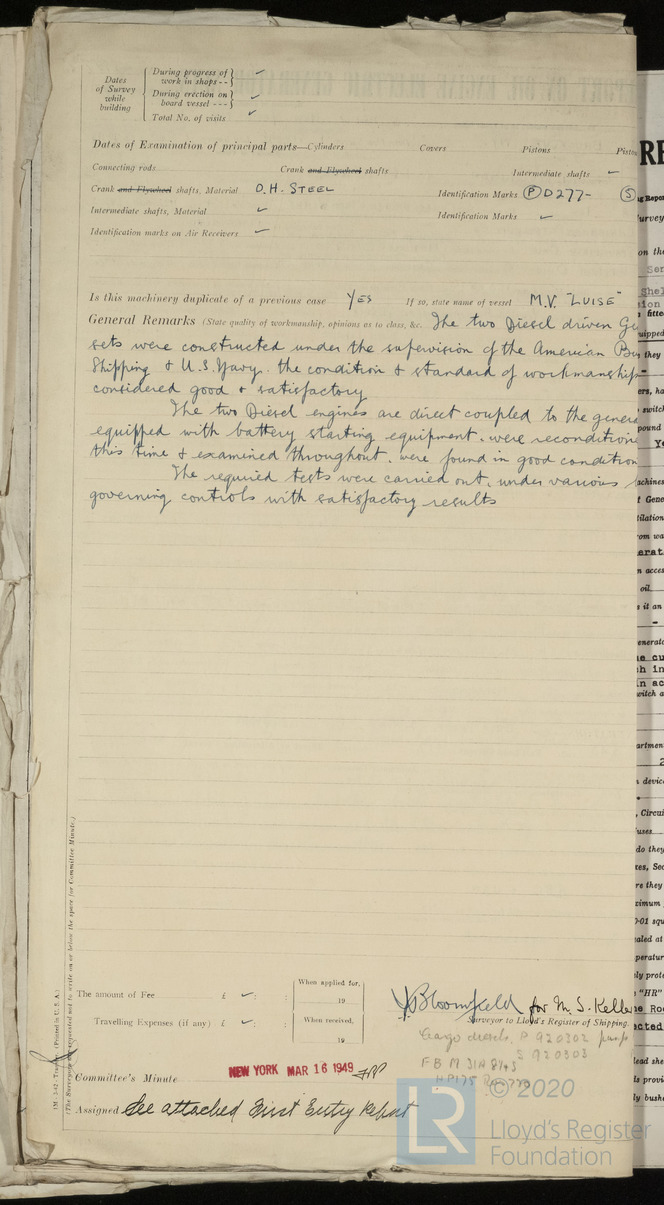 Dates of Survey while building
During progress of work in shops -- ✓
During erection on board vessel --- ✓
Total No. of visits ✓
Dates of Examination of principal parts—Cylinders Covers Pistons
Connecting rods Crank and Flywheel shafts Intermediate shafts ✓
Crank and Flywheel shafts, Material O.H. STEEL Identification Marks (P) D277- (S)
Intermediate shafts, Material ✓ Identification Marks ✓
Identification marks on Air Receivers ✓
Is this machinery duplicate of a previous case YES If so, state name of vessel M.V. "LUISE"
General Remarks (State quality of workmanship, opinions as to class, &c. The two Diesel driven Ge
sets were constructed under the supervision of the American Bu
Shipping & U.S. Navy. the condition & standard of workmanship
considered good & satisfactory
The two Diesel engines are direct coupled to the genera
equipped with battery starting equipment. were recondition
this time & examined throughout. were found in good condition
The required tests were carried out, under various
governing controls with satisfactory results
The amount of Fee £ ✓ : :
Travelling Expenses (if any) £ ✓ : :
When applied for,
19
When received,
19
Bloomfield for M. S. Kelle
Surveyor to Lloyd's Register of Shipping.
Cargo diesels, P 920302
S 920303
Committee's Minute NEW YORK MAR 16 1949
Assigned See attached First Entry Report
(Printed in U.S.A.)
(The Surveyors are requested not to write on or below the space for Committee Minute.)
© 2020
LR
Lloyd's Register
Foundation